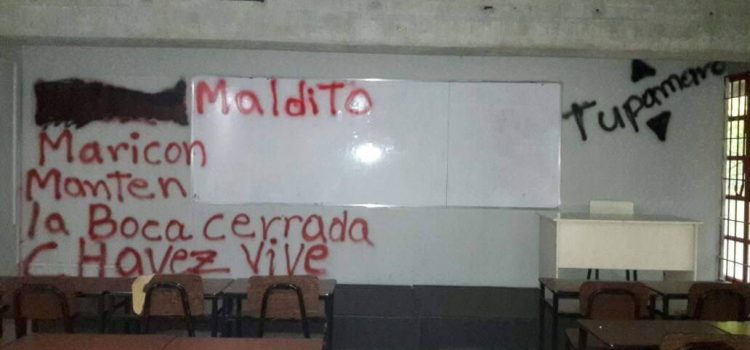 Maldito
Maricon
Manten
la Boca cerrada
CHavez vive
Tupamaro